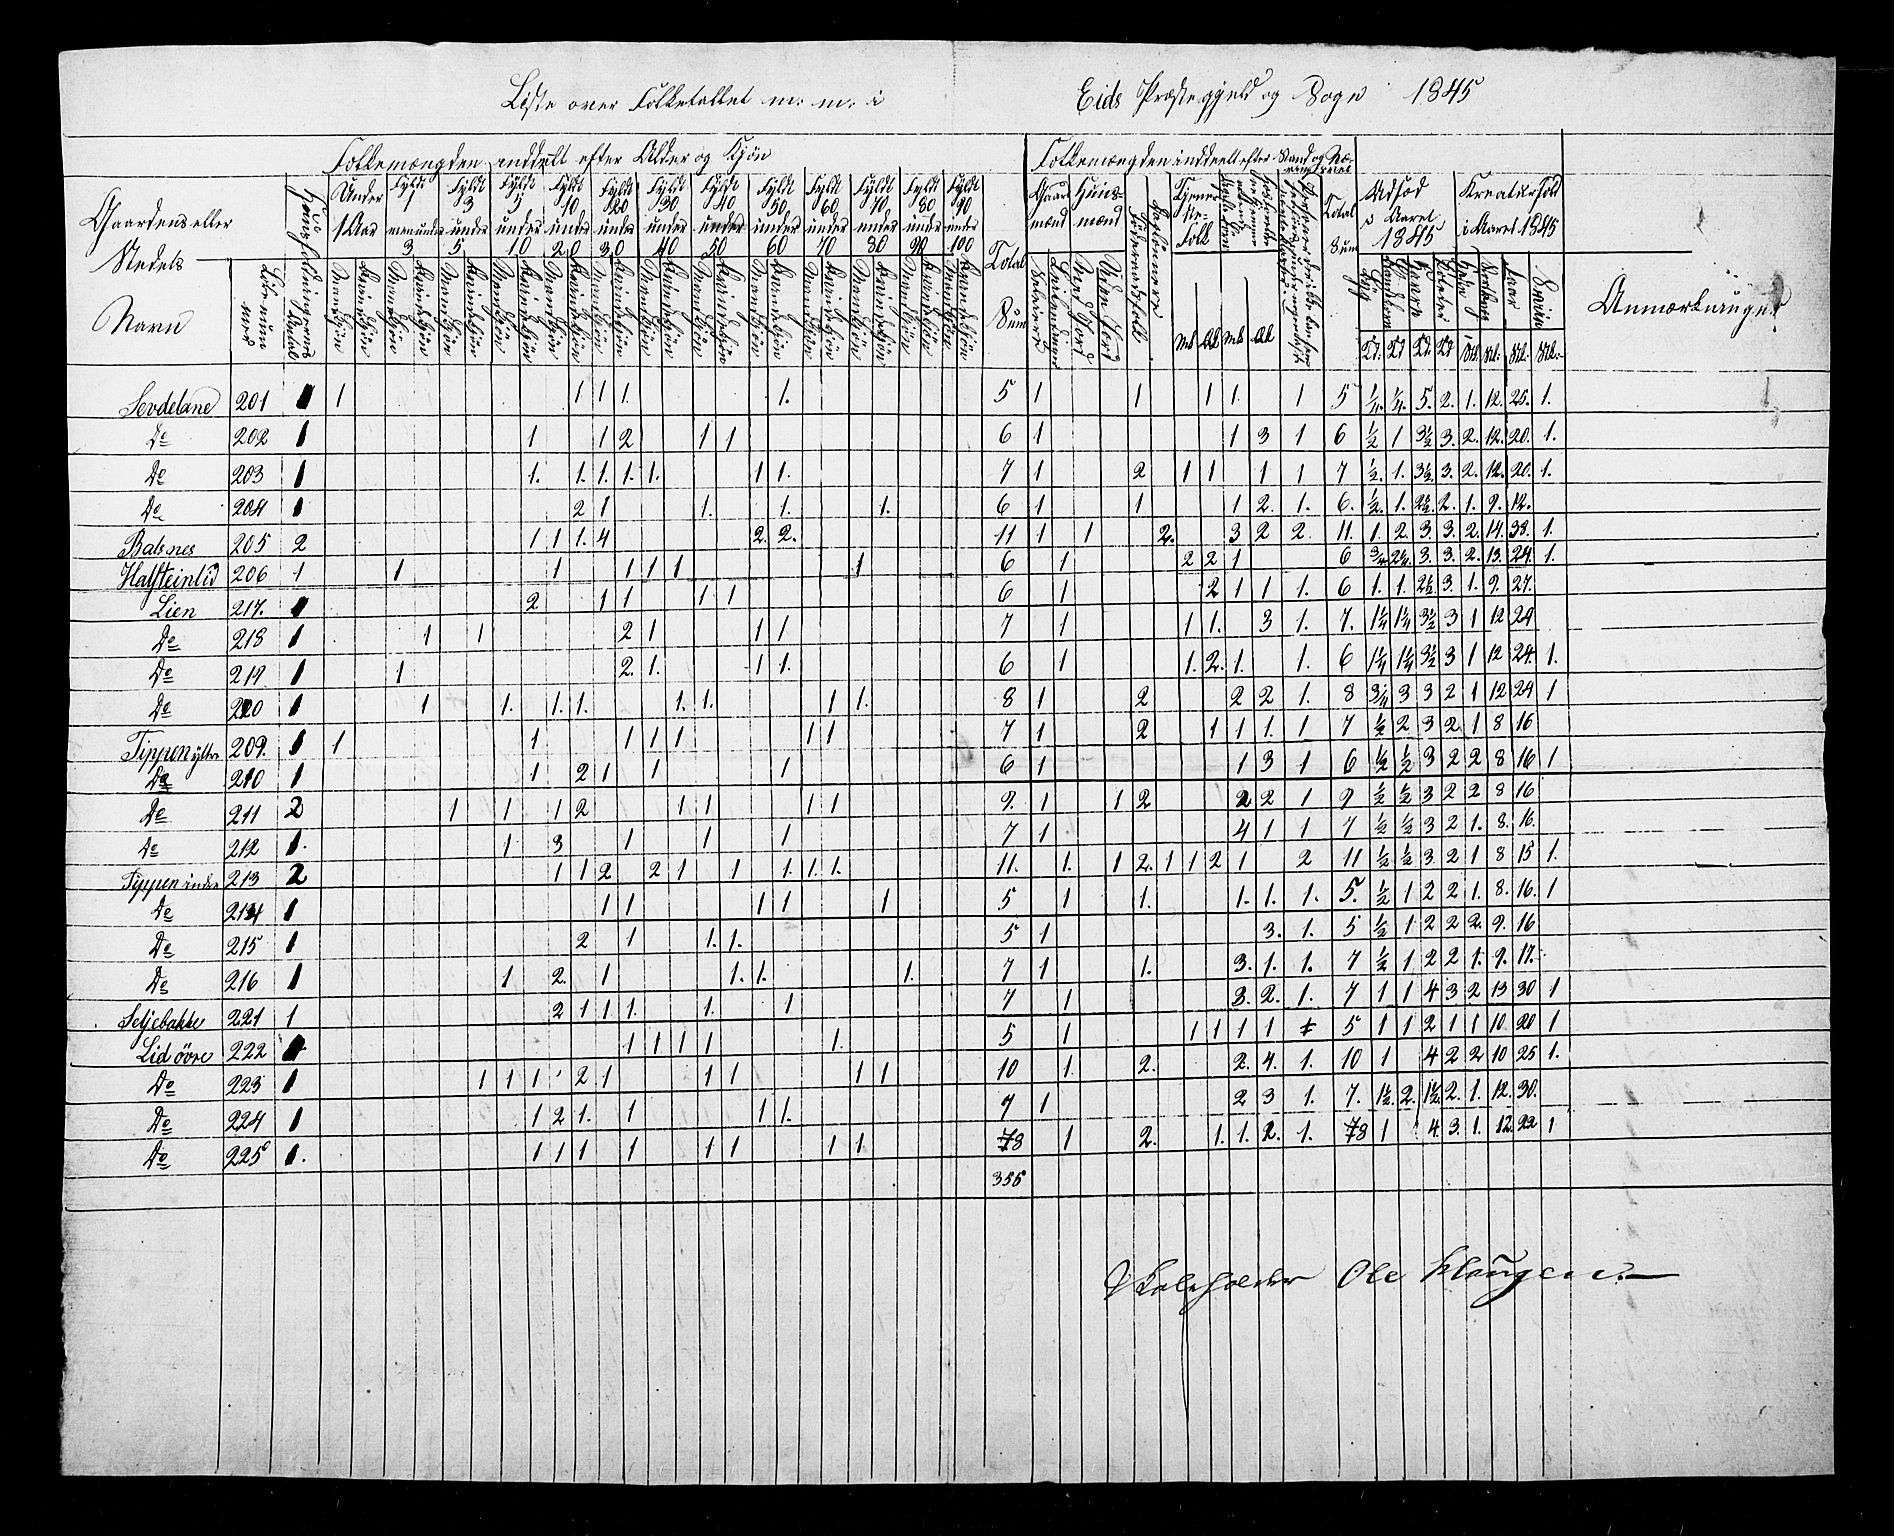 Liste over Folketallet m: m: i Eids Præstegjeld og Sogn 1845
Folkemængden inddelt efter Alder og Kjøn
Folkemængden inddeelt efter Stand og Næringsveiei
Gaardens eller Stedets Navn
Løbenummer
Huusholdningernes Antal
Under 1 Aar
Fyldt 1 men under 3
Fyldt 3 under 5
Fyldt 5 under 10
Fyldt 10 under 20
Fyldt 20 under 30
Fyldt 30 under 40
Fyldt 40 under 50
Fyldt 50 under 60
Fyldt 60 under 70
Fyldt 70 under 80
Fyldt 80 under 90
Fyldt 90 under 100
Mandkjøn Kvindekjøn
Total Sum
Gaardmænd
Huusmænd
Selveiere
Leilændinger
Med Jord
Uden Jord
Føderaadsfolk
Daglønnere
Tjenestefolk
Total Sum
Udsæd i Aaret 1845
Kreaturhold i Aaret 1845
Anmærkninger
Sevdelane 201 1 1 1 1 1. 1. 5 1 1 1 1. 1 5 ¼. ¼. 5. 2. 1. 12. 25. 1.
Do 202 1 1 1 2 1 1 6 1 1 3 1 6 ½ 1 3½ 3. 2. 12. 20. 1.
Do 203 1 1. 1. 1. 1. 1. 1 1. 7 1 2 1 1 1 1 7 ½. 1. 3½ 3. 2. 12. 20. 1.
Do 204 1 2 1 1. 1. 1. 6 1 1 1 2. 1. 6. ½. 1. 2½. 2. 1. 9. 12.
Balsnes 205 2 1 1 1. 4 2. 2. 11 1 1 2. 3 2 2. 11. 1. 2. 3. 3. 2. 14. 38. 1.
Halsteinlid 206 1 1 1 1 1 1 1 6 1 2 2 1 6 ¾ 2¼ 3. 3. 2. 13. 24. 1.
Lien 217. 1 2 1 1 1 1 6 1 2 1 1 1. 6 1. 1. 2½ 3. 1. 9. 27.
Do 218 1 1 1 2 1 1 1 7 1 1 1. 3 1. 7. 1¼ 1¼ 3½ 3 1 12 20
Do 219 1 1 2. 1. 1 1. 6 1 1. 2. 1. 1. 6 1¼ 1¼ 3½ 3 1 12 24. 1.
Do 220 1 1 1. 1. 1. 1 1. 1 1. 8 1 2 2 2 1. 8 ¾ 3 3 2 1 12 24 1
Tippen ytre 209. 1 1 1 1 1 1 1 1 7 1 2 1 1 1. 1 7 ½ 2 3 2. 1 8 16
Do 210 1 1 2 1 1 1 6 1 1 3 1 6 ½ ½ 3 2 2 8 16 1
Do 211 2 1 1 1 2 1 1 1 1 9. 1 1 2 2 2 1 9 ½ ½ 3 2 2 8 16
Do 212 1. 1 3 1 1 1 7 1 4 1 1 7 ½ ½ 3 2 1. 8. 16.
Tippen indre 213 2 1 1 2 2 1 1 1. 1. 1. 11. 1. 1 2. 1 1 2 1 2 11 ½ ½ 3. 2 1 8 15 1.
Do 214 1 1 1 1 1 1 5 1 1. 1. 1. 1. 5. ½ 1 2 2 1. 8. 16. 1
Do 215 1 2 1 1. 1. 5 1 3. 1. 5 ½ 1 2 2 2. 9. 16
Do 216 1 1 2. 1 1. 1. 1. 7 1 1. 3. 1. 1. 7 ½ 1 2 2 1. 9. 17.
Seljebakke 221 1 2 1 1 1. 1. 1 7 1 3. 2. 1. 7 1 1 4 3 2 13 30 1
Lid övre 222 1 1 1 1 1 1. 5 1 1 1 1 1 5 1 1 2 1 1 10 20 1
Do 223 1 1 1 1 2 1 1 1 1 1 10 1. 2. 2. 4. 1. 10 1 4 2 2 10 25 1.
Do 224 1 1 2 1. 1 1 1. 7 1 2 3 1. 7. 1½ 2. 1½ 2. 1. 12. 30.
Do 225 1. 1 1 1 1 1 1 1 1. 8 1 2. 1. 1. 2. 1. 8 1 4. 3. 1. 12 22 1
355
Skoleholder Ole Haugen.